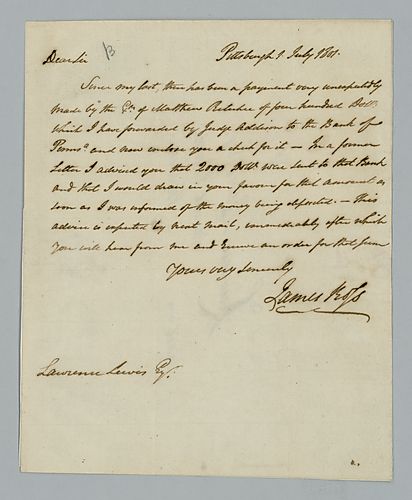 Dear Sir
Pittsburgh 1 July 1801.
Since my last, there has been a payment very unexpectedly
made by the Exs. of Matthew Ritchie of four hundred Dolls.
which I have forwarded by Judge Addison to the Bank of
Pennsa. and now inclose you a check for it — In a former
Letter I advised you that 2000 Dolls. were sent to that Bank
and that I would draw in your favour for that amount as
soon as I was informed of the money being deposited — this
advice is expected by next mail, immediately after which
you will hear from me and receive an order for that sum
Yours very sincerely
James Ross
Lawrence Lewis Esqr.